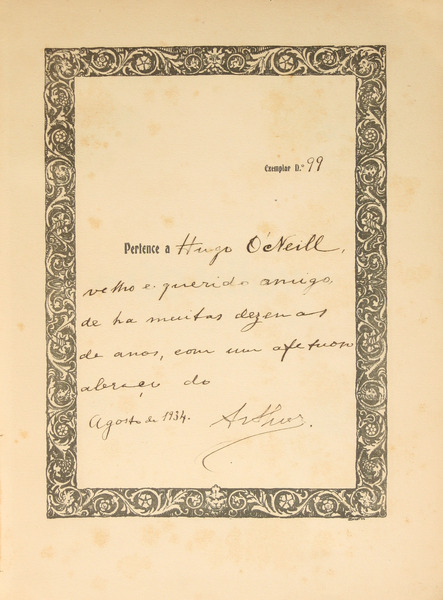 Exemplar N.º 99
Pertence a Hugo O'Neill,
velho e querido amigo,
de ha muitas dezenas
de anos, com um afetuoso
abraço do
Agosto de 1934.